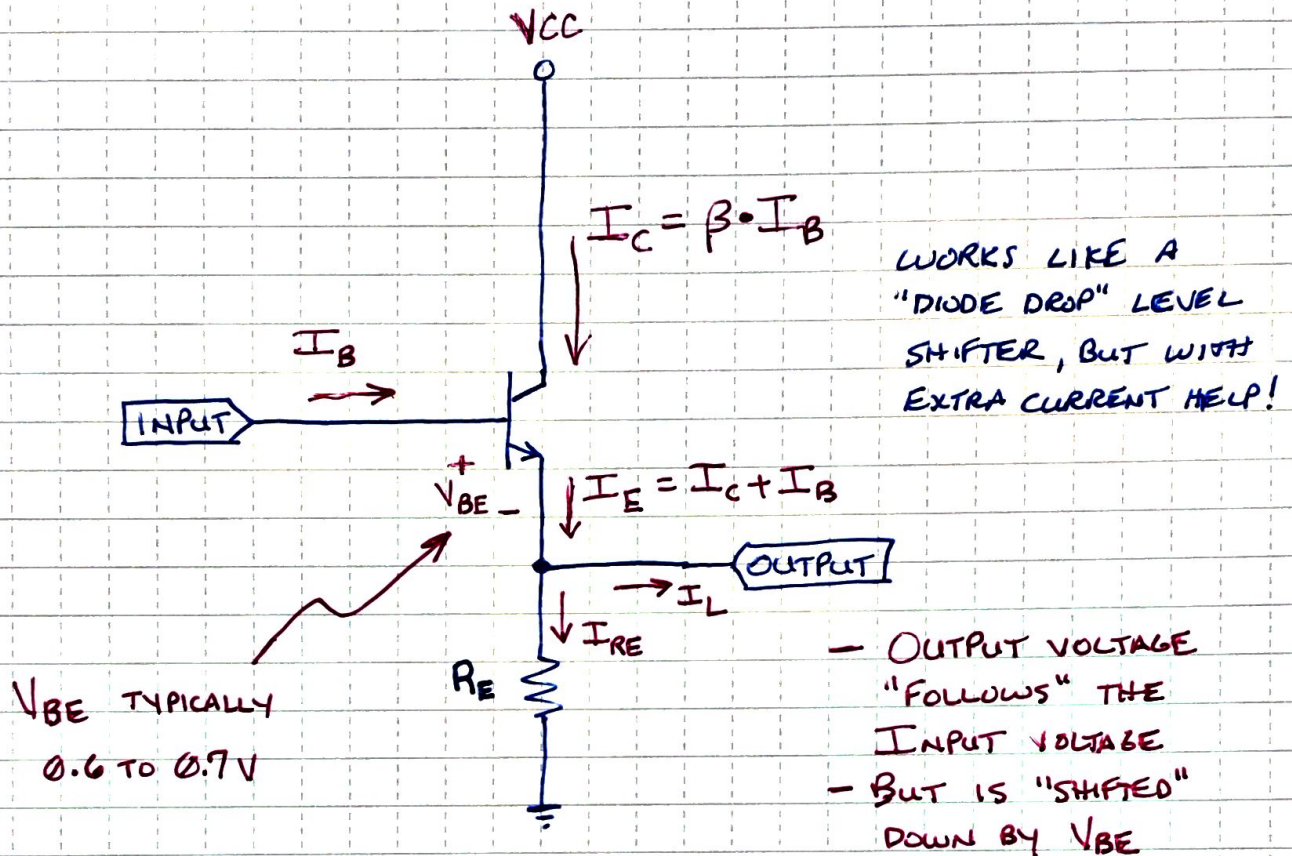 VCC
I_C = β • I_B
WORKS LIKE A
"DIODE DROP" LEVEL
SHIFTER, BUT WITH
EXTRA CURRENT HELP!
I_B
INPUT
+
V_BE -
I_E = I_C + I_B
OUTPUT
I_L
I_RE
R_E
V_BE TYPICALLY
0.6 TO 0.7V
- OUTPUT VOLTAGE
"FOLLOWS" THE
INPUT VOLTAGE
- BUT IS "SHIFTED"
DOWN BY V_BE